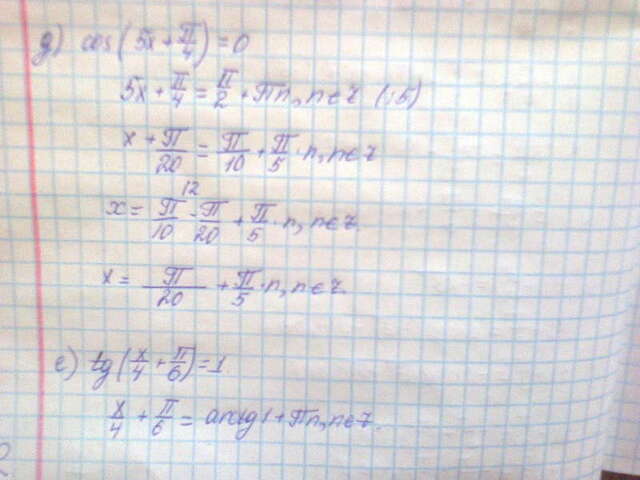 д) cos(5x + π/4) = 0
5x + π/4 = π/2 + πn, n ∈ z (:5)
x + π/20 = π/10 + π/5 · n, n ∈ z
x = π/10 \2 - π/20 + π/5 · n, n ∈ z
x = π/20 + π/5 · n, n ∈ z
е) tg(x/4 + π/6) = 1
x/4 + π/6 = arctg 1 + πn, n ∈ z.